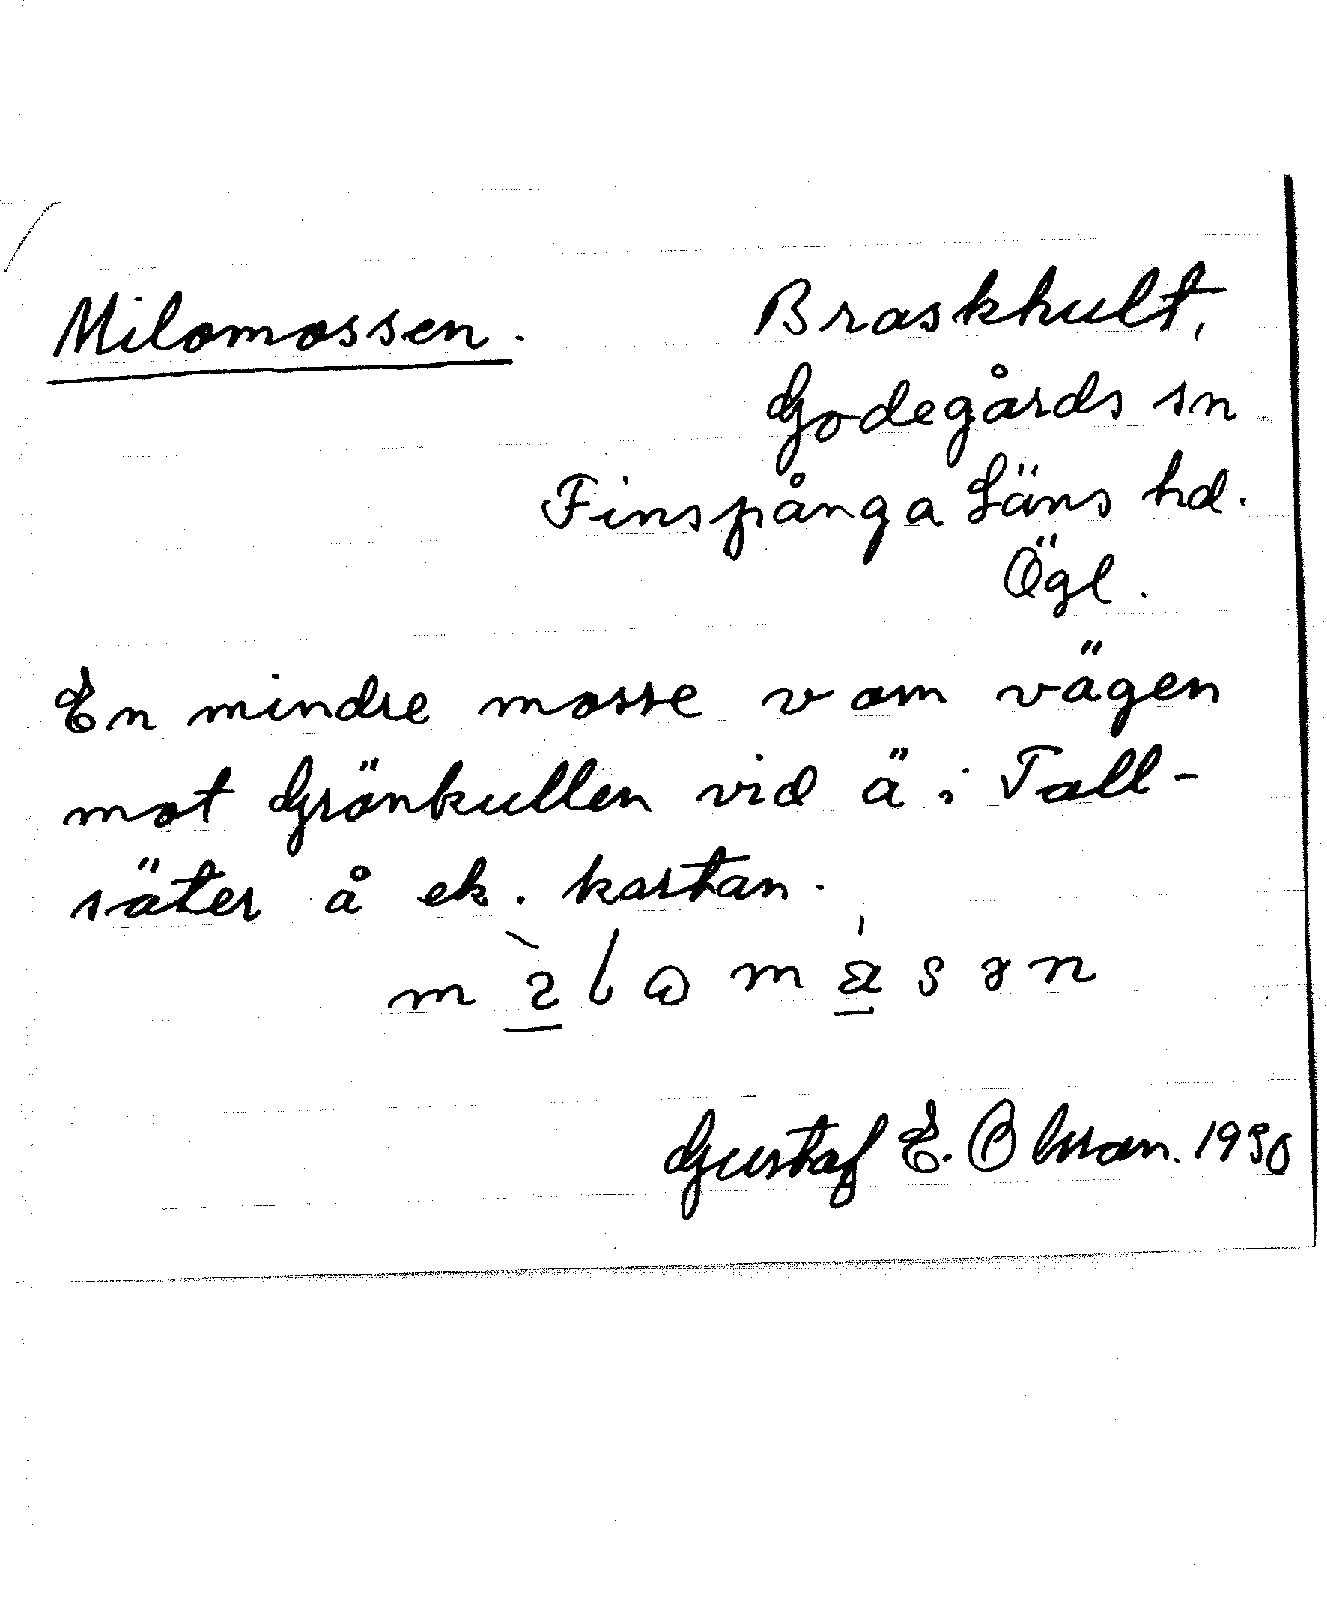 Milomossen. Braskhult,
Godegårds sn
Finspånga Läns hd.
Ögl.
En mindre mosse v om vägen
mot Grönkullen vid ä i Tall-
säter å ek. kartan.
Gustaf E. Olsson. 1930